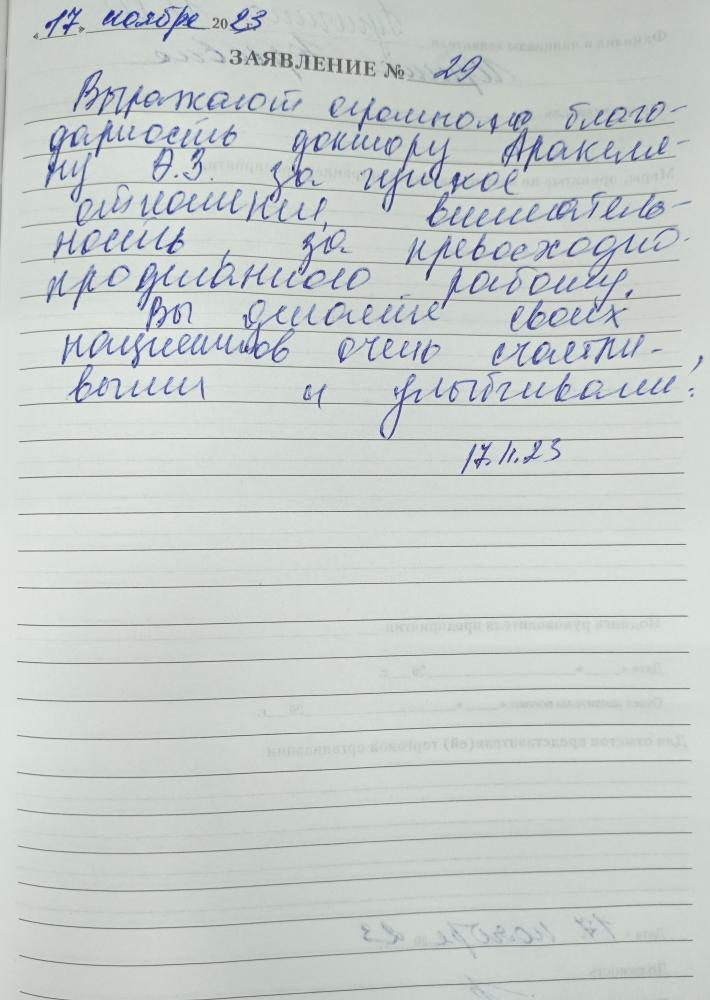 «17» ноября 2023 г.
ЗАЯВЛЕНИЕ № 29
Выражают огромную благо-
дарность доктору Аракеля-
ну Э.З. за чуткое
отношение, вниматель-
ность, за превосходно
проделанного работу.
Вы делаете своих
пациентов очень счастли-
выми и улыбчивыми!
17.11.23